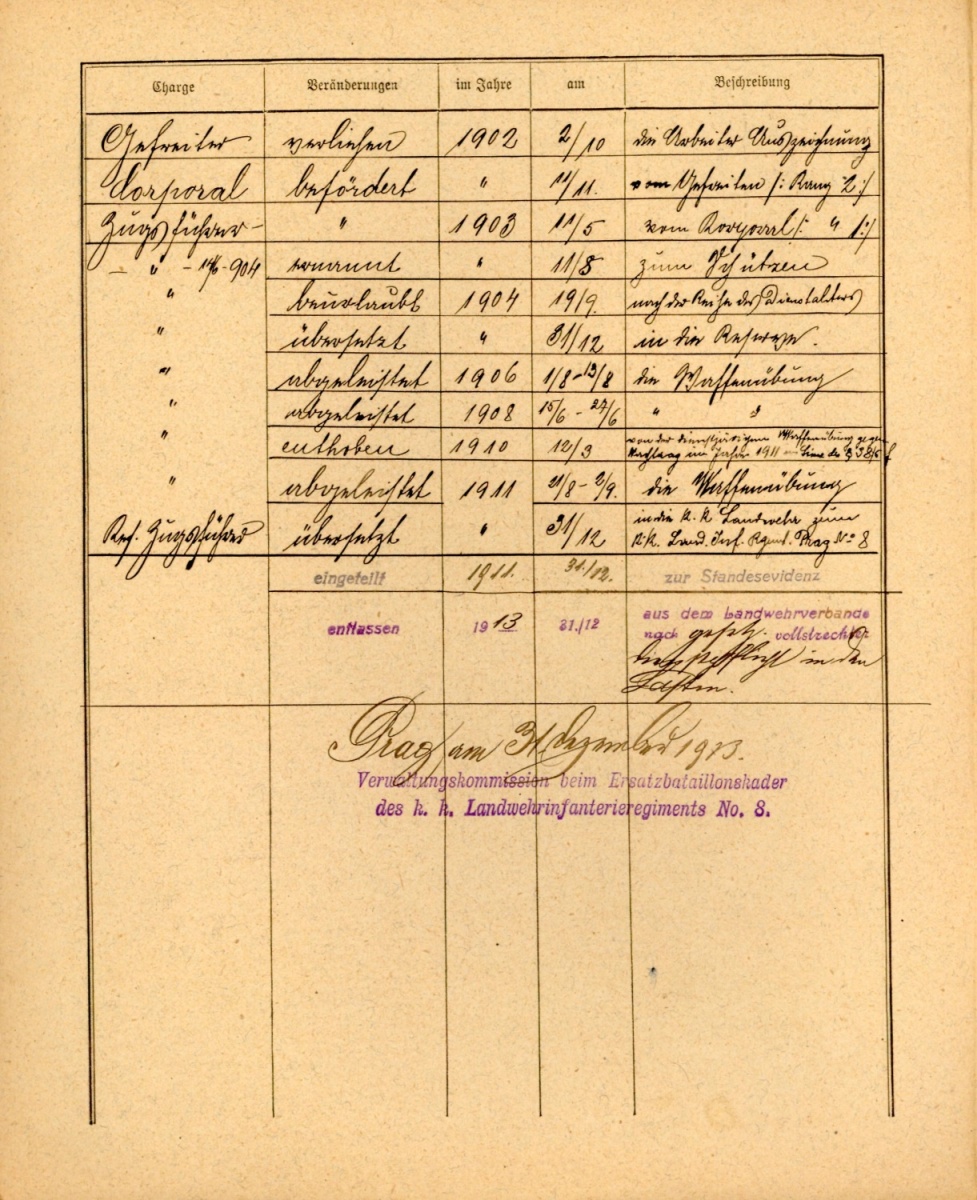 Charge Veränderungen im Jahre am Beschreibung
Gefreiter verliehen 1902 2/10 die Arbeiter Auszeichnung
Corporal befördert " 11/11. vom Gefreiten /: Rang 2 :/
Zugsführer " 1903 11/5 vom Korporal /: " 1 :/
" -904 ernannt " 11/8 zum Schützen
" beurlaubt 1904 19/9. nach der Reihe des Dienstalters
" übersetzt " 31/12 in die Reserve.
" abgeleistet 1906 1/8 - 13/8 die Waffenübung
" abgeleistet 1908 15/6 - 27/6 " "
" enthoben 1910 12/3 von der diesjährigen Waffenübung gegen
Nachtrag im Jahre 1911 im Sinne des §
" abgeleistet 1911 21/8 - 2/9. die Waffenübung
Res. Zugsführer übersetzt " 31/12 in die k. k. Landwehr zum
k. k. Land. Inf. Rgmt. Prag No 8
eingeteilt 1911. 31./12. zur Standesevidenz
entlassen 1913 31./12 aus dem Landwehrverbande
nach gesetz. vollstreckter
Dienstpflicht in den
Prag am 31 Dezember 1913.
Verwaltungskommission beim Ersatzbataillonskader
des k. k. Landwehrinfanterieregiments No. 8.